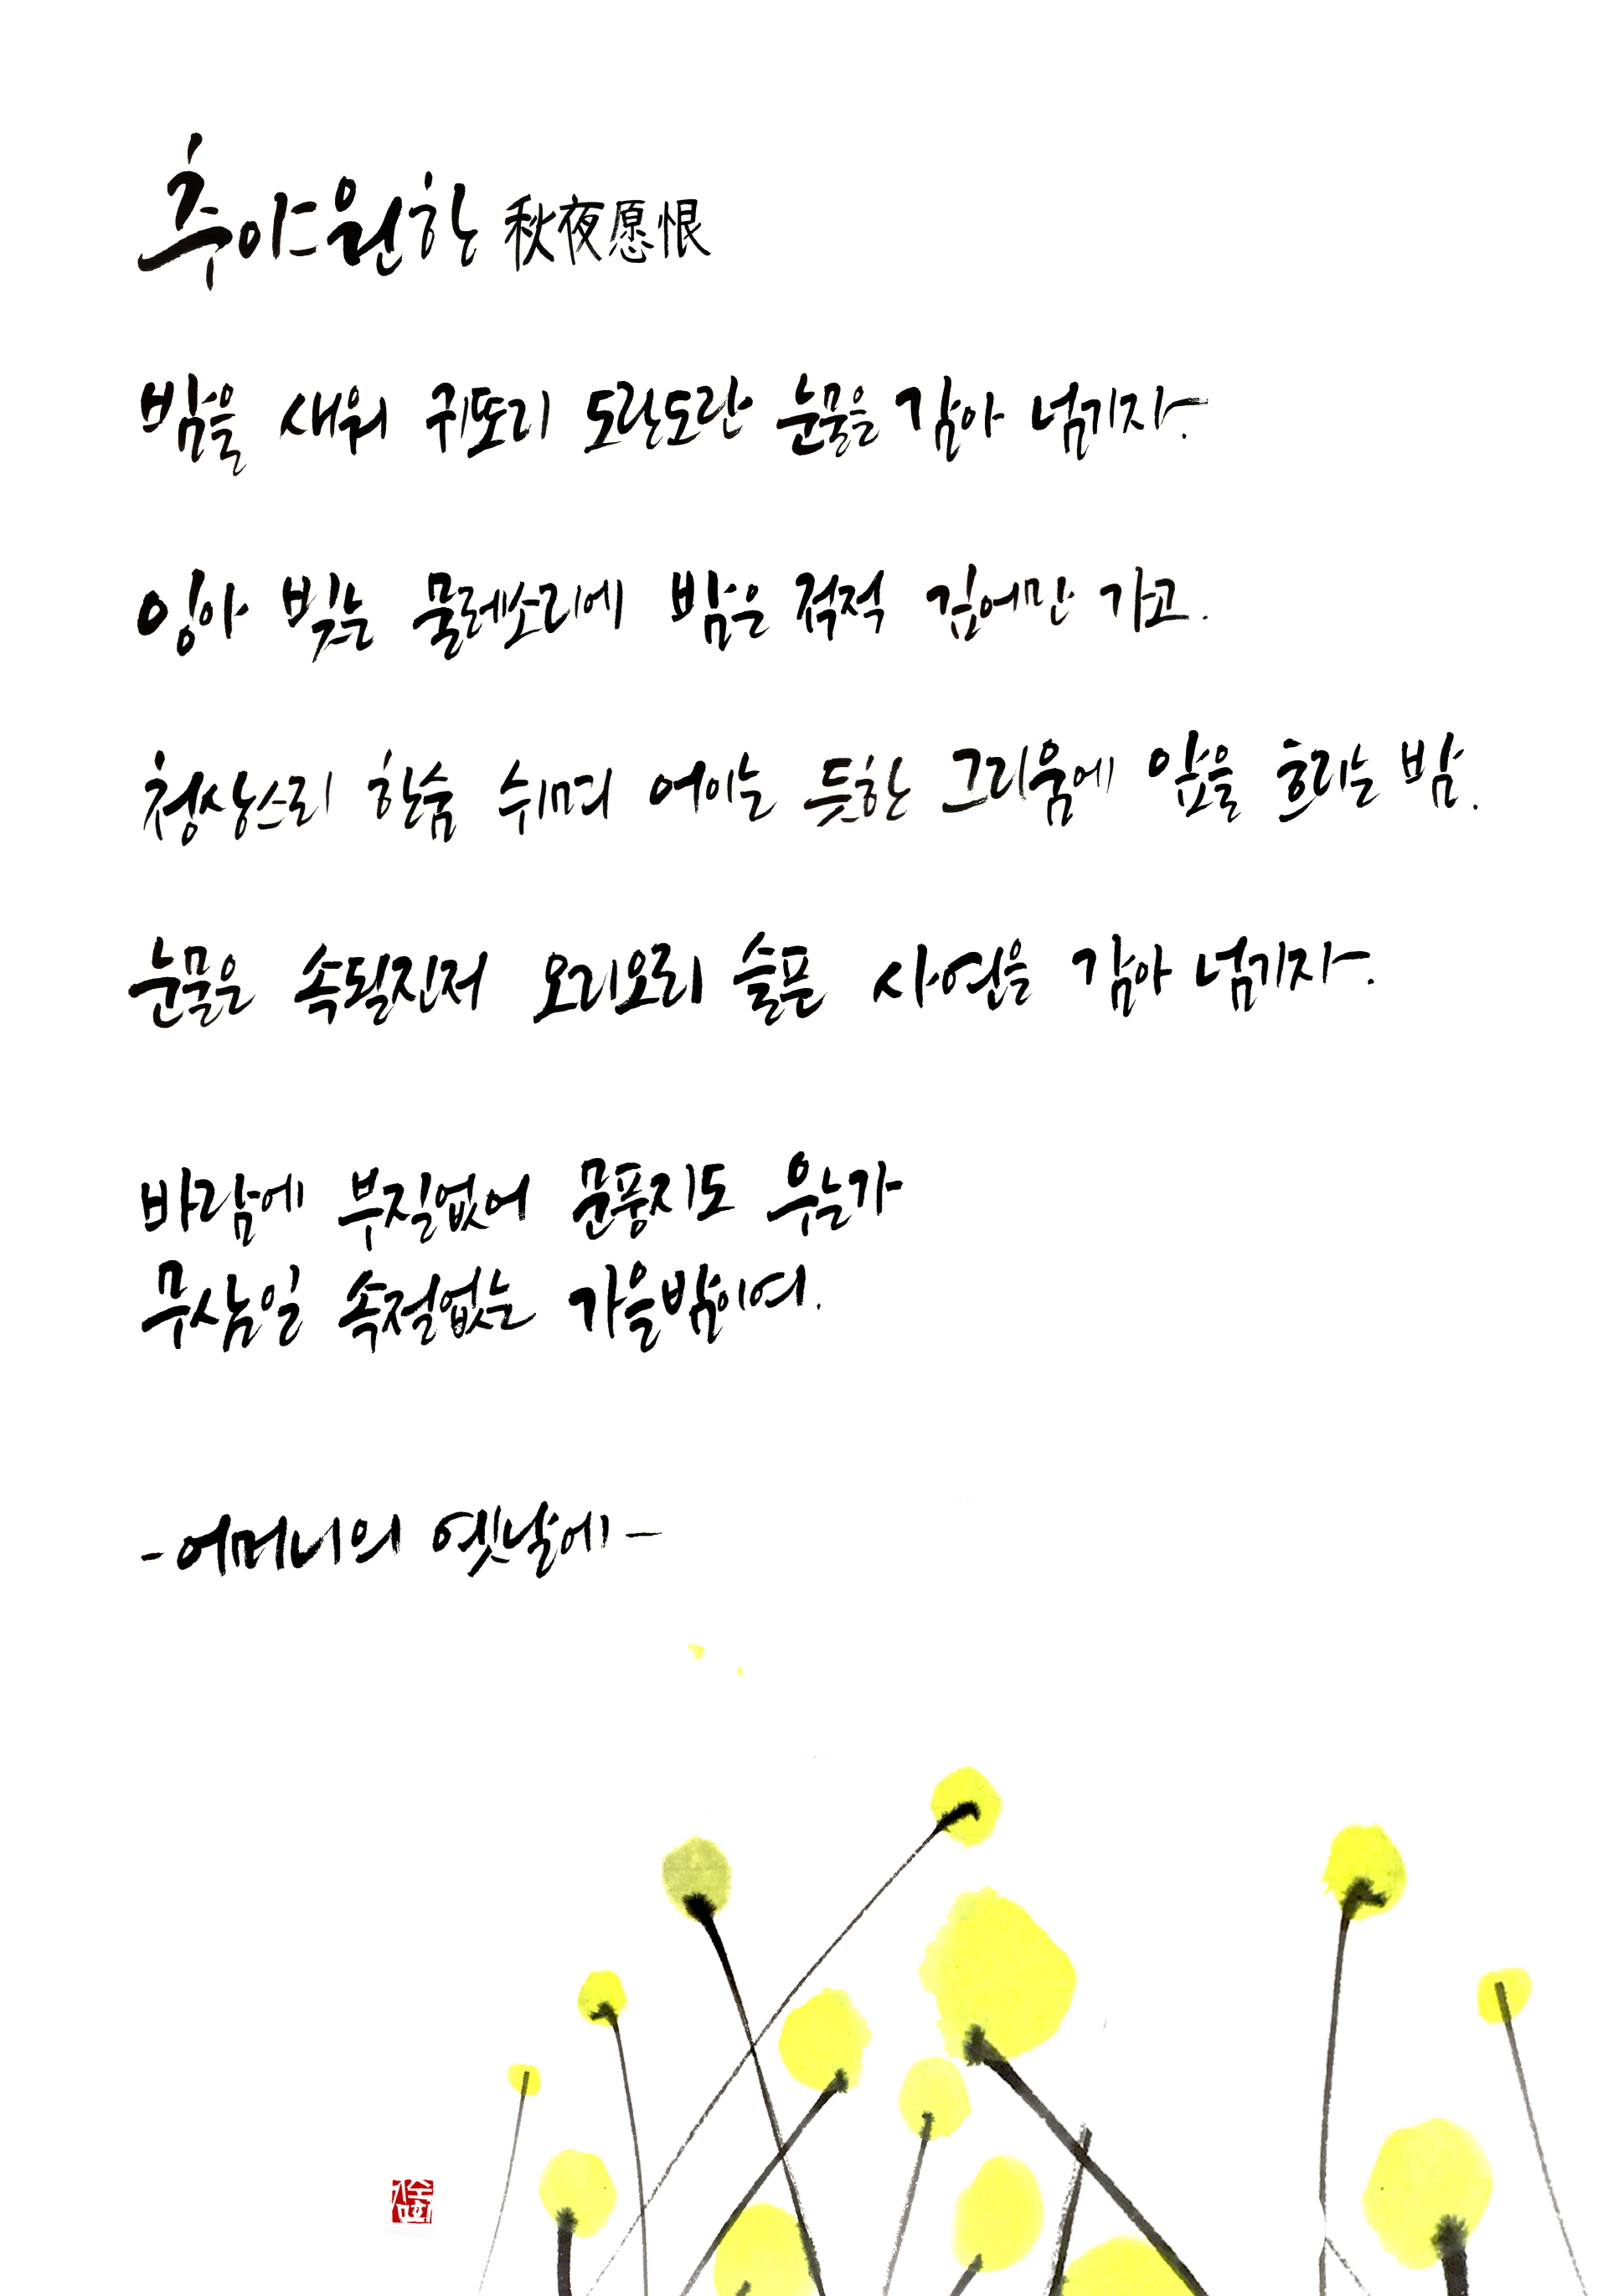 추야원한 秋夜愿恨
밤을 새워 귀또리 도란도란 눈물을 감아 넘기자.
잉아 빚는 물레소리에 밤은 적적 깊어만 가고.
청상스리 한숨 쉬며 어이는 듯한 그리움에 앞을 흐리는 밤.
눈물은 속될진저 오리오리 슬픈 사연을 감아 넘기자.
바람에 부질없어 문풍지도 우는가
무삼일 속절없는 가을밤이여.
-어머니의 옛날에-